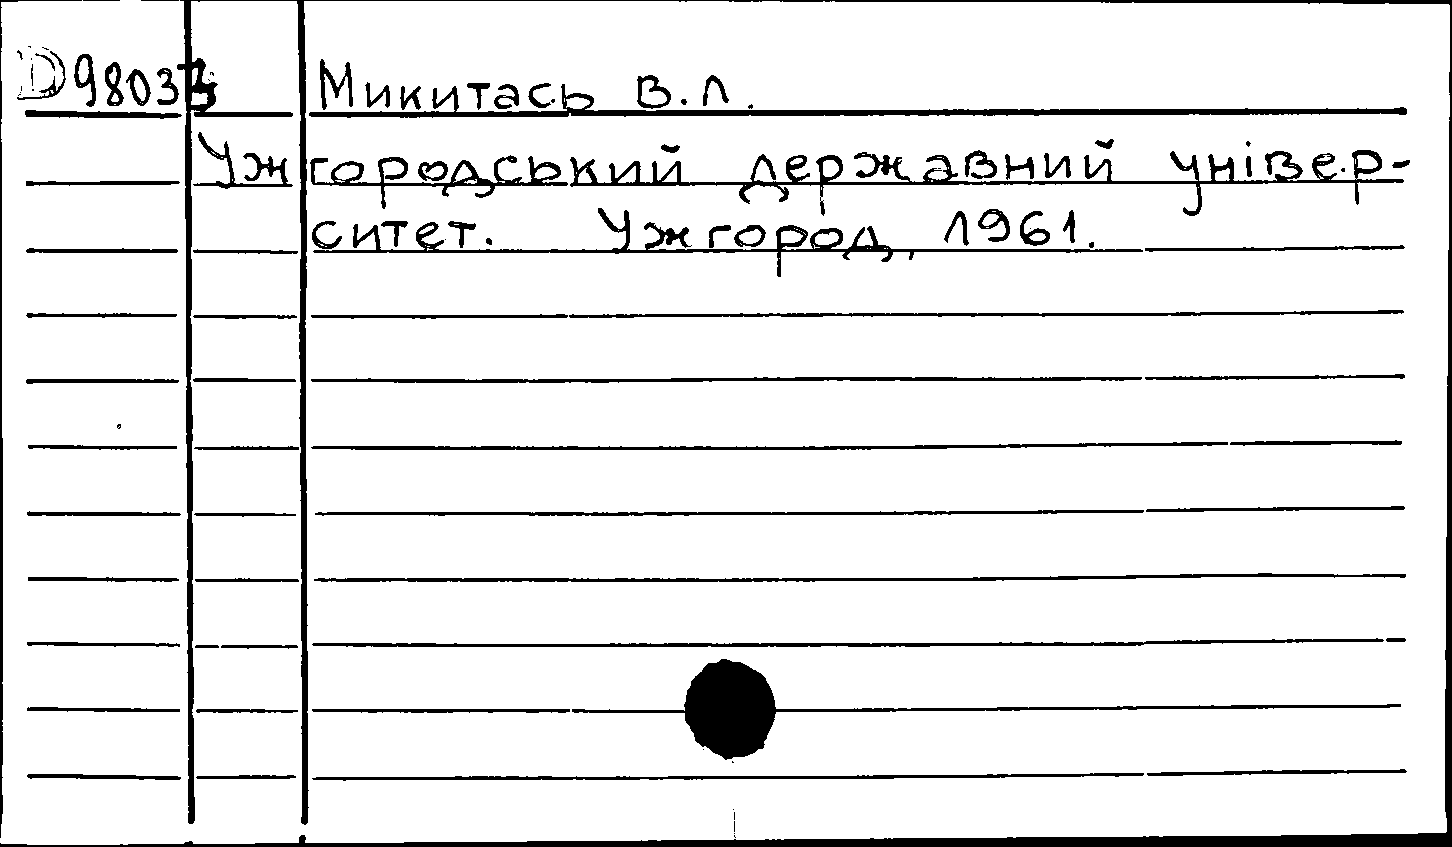 Микитась В.Л.
Ужгородський державний універ-
ситет. Ужгород, 1961.